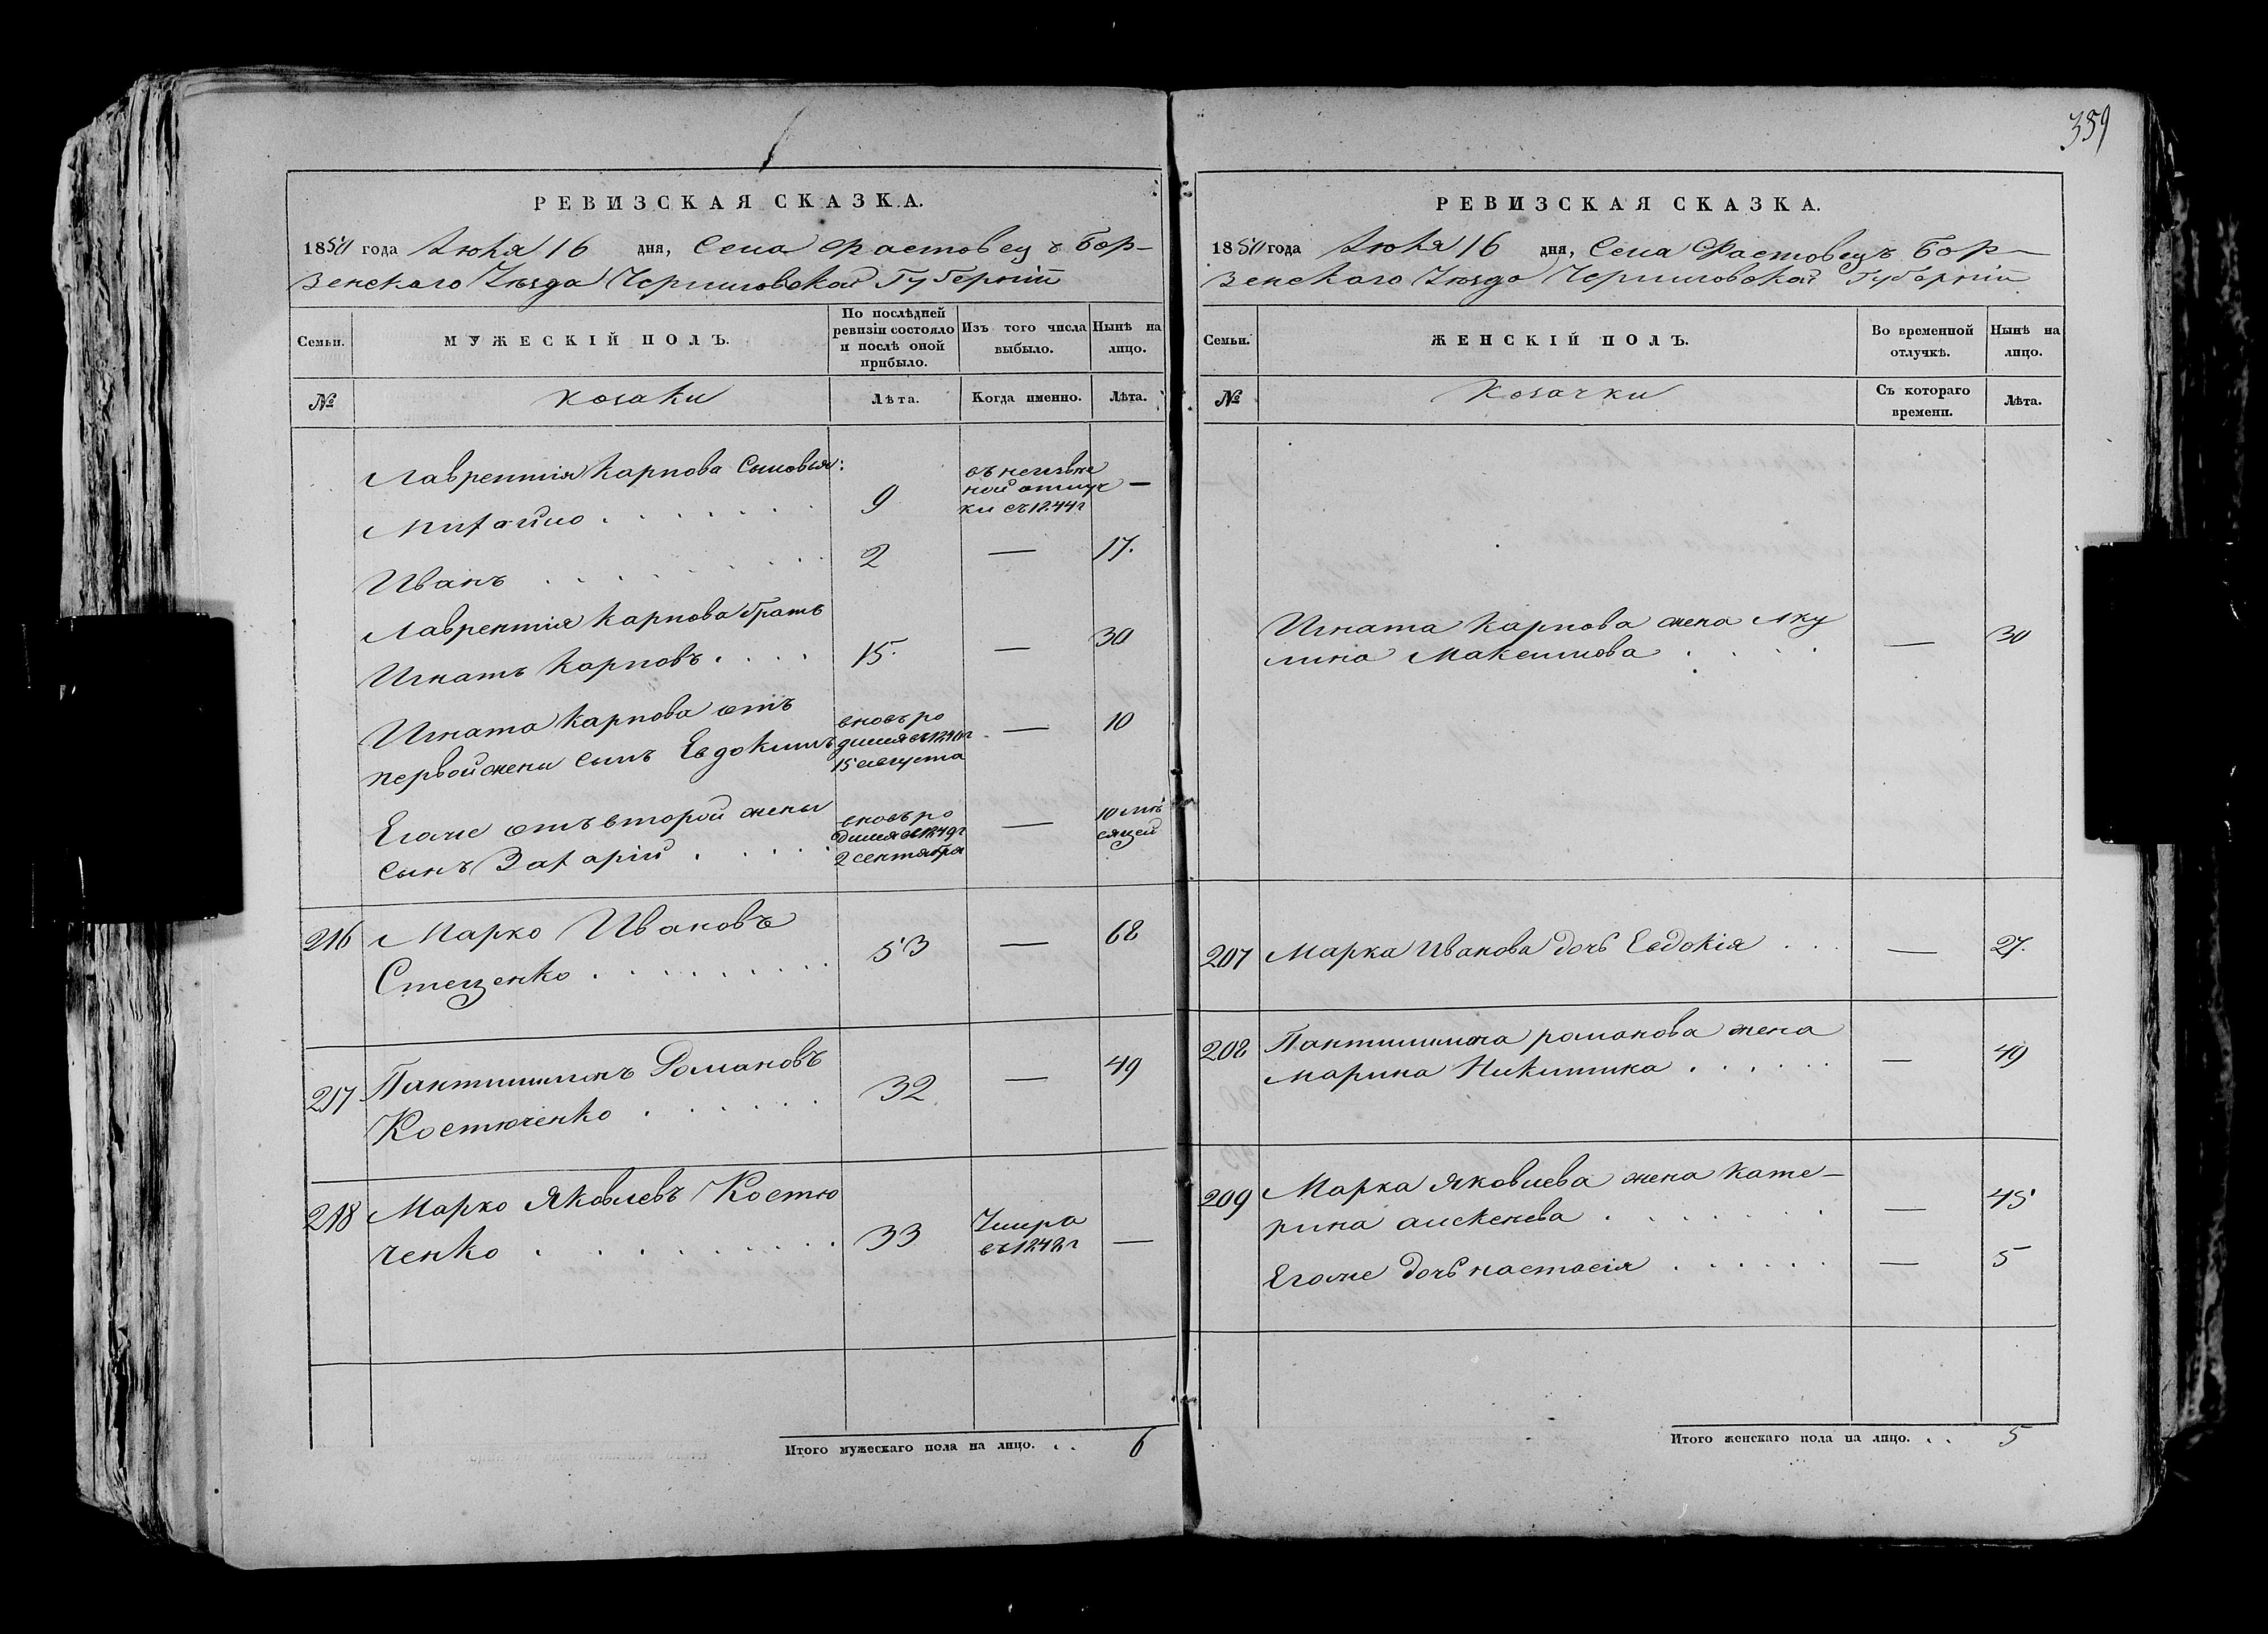 359
РЕВИЗСКАЯ СКАЗКА.
1850 года Июня 16 дня, Села Фастовецъ Бор-
зенскаго Уезда Черниговской Губерніи
Семьи.
МУЖЕСКІЙ ПОЛЪ.
По послѣдней ревизіи состояло и послѣ оной прибыло.
Изъ того числа выбыло.
Нынѣ на лицо.
№
Козаки
Лѣта.
Когда именно.
Лѣта.
Лаврентія Карпова Сыновья:
Михайло . . . . . . . 9 ной отлуч —
ки съ 1844г
Иванъ . . . . . . . . 2 — 17.
Лаврентія Карпова братъ
Игнатъ Карповъ . . . . 15. — 30
Игната Карпова отъ
первой жены сынъ Евдокимъ
вновь ро
15 августа
— 10
Егоже отъ второй жены
сынъ Захарій . . . .
вновь ро
дился в 1849г
2 сентября
— 10 мѣ
сяцей
216 Марко Ивановъ
Стеценко . . . . . . . . . 53 — 68
217 Пантилимонъ Романовъ
Костюченко . . . . . . 32 — 49
218 Марко Яковлевъ Костю
ченко . . . . . . . . . 33 Умира
въ 1848г —
Итого мужескаго пола на лицо. . . 6
РЕВИЗСКАЯ СКАЗКА.
1850 года Июня 16 дня, Села Фастовецъ Бор-
зенскаго Уезда Черниговской Губерніи
Семьи.
ЖЕНСКІЙ ПОЛЪ.
Во временной отлучкѣ.
Нынѣ на лицо.
№
Козачки
Съ котораго времени.
Лѣта.
Игната Карпова жена Аку
лина Максимова . . . . — 30
207 Марка Иванова дочь Евдокія . . . — 27.
208 Пантилимона романова жена
марина Никитина . . . . . . — 49
209 Марка Яковлева жена Кате-
рина . . . . . . . — 45
Егоже дочь настасія . . . . . . — 5
Итого женскаго пола на лицо. . . 5